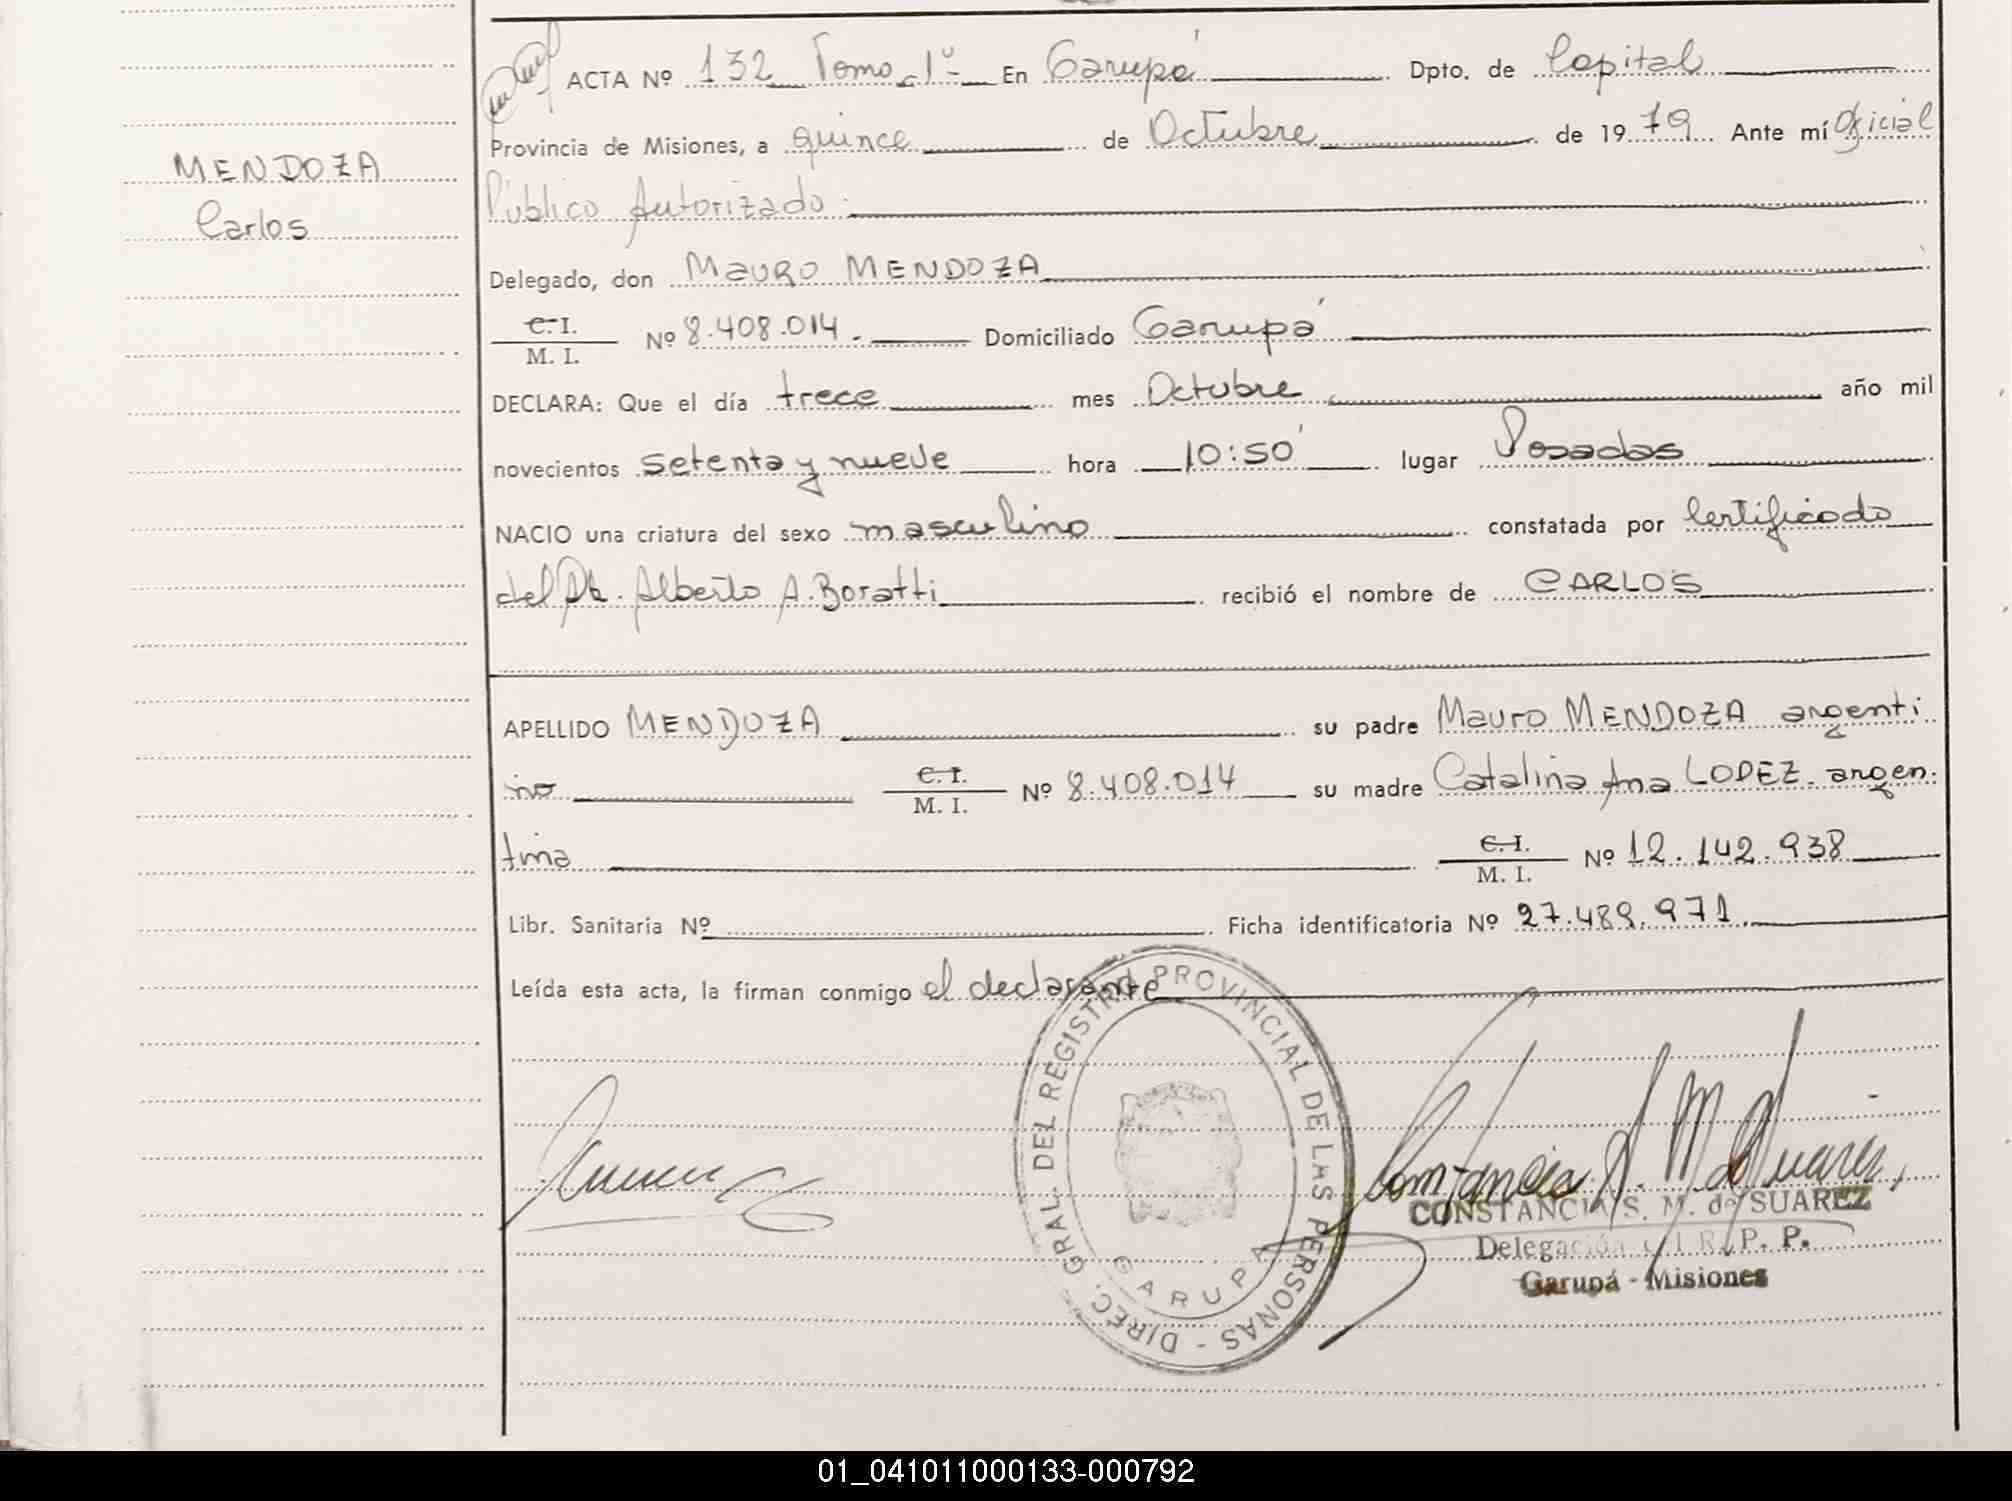 ACTA Nº 132 Tomo 1º- En Garupá Dpto. de Capital
Provincia de Misiones, a quince de Octubre de 1979 Ante mí Oficial
Público Autorizado.
MENDOZA
Carlos
Delegado, don Mauro MENDOZA
C. I.
M. I.
Nº 8.408.014.- Domiciliado Garupá
DECLARA: Que el día trece mes Octubre año mil
novecientos setenta y nueve hora 10:50' lugar Posadas
NACIO una criatura del sexo masculino constatada por Certificado
del Dr. Alberto A. Boratti recibió el nombre de CARLOS
APELLIDO MENDOZA su padre Mauro MENDOZA argenti
no C. I. M. I. Nº 8.408.014 su madre Catalina Ana LOPEZ. argen.
tina C. I. M. I. Nº 12.142.938
Libr. Sanitaria Nº Ficha identificatoria Nº 27.489.971
Leída esta acta, la firman conmigo el declarante
DIREC. GRAL. DEL REGISTRO PROVINCIAL DE LAS PERSONAS -
GARUPA
Constancia S. M. de Suarez
CONSTANCIA S. M. de SUAREZ
Delegación del R. P. P.
Garupá - Misiones
01_041011000133-000792